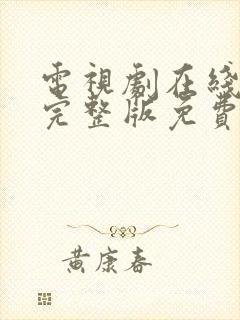 電視劇在綫
完整版免費
黃康春